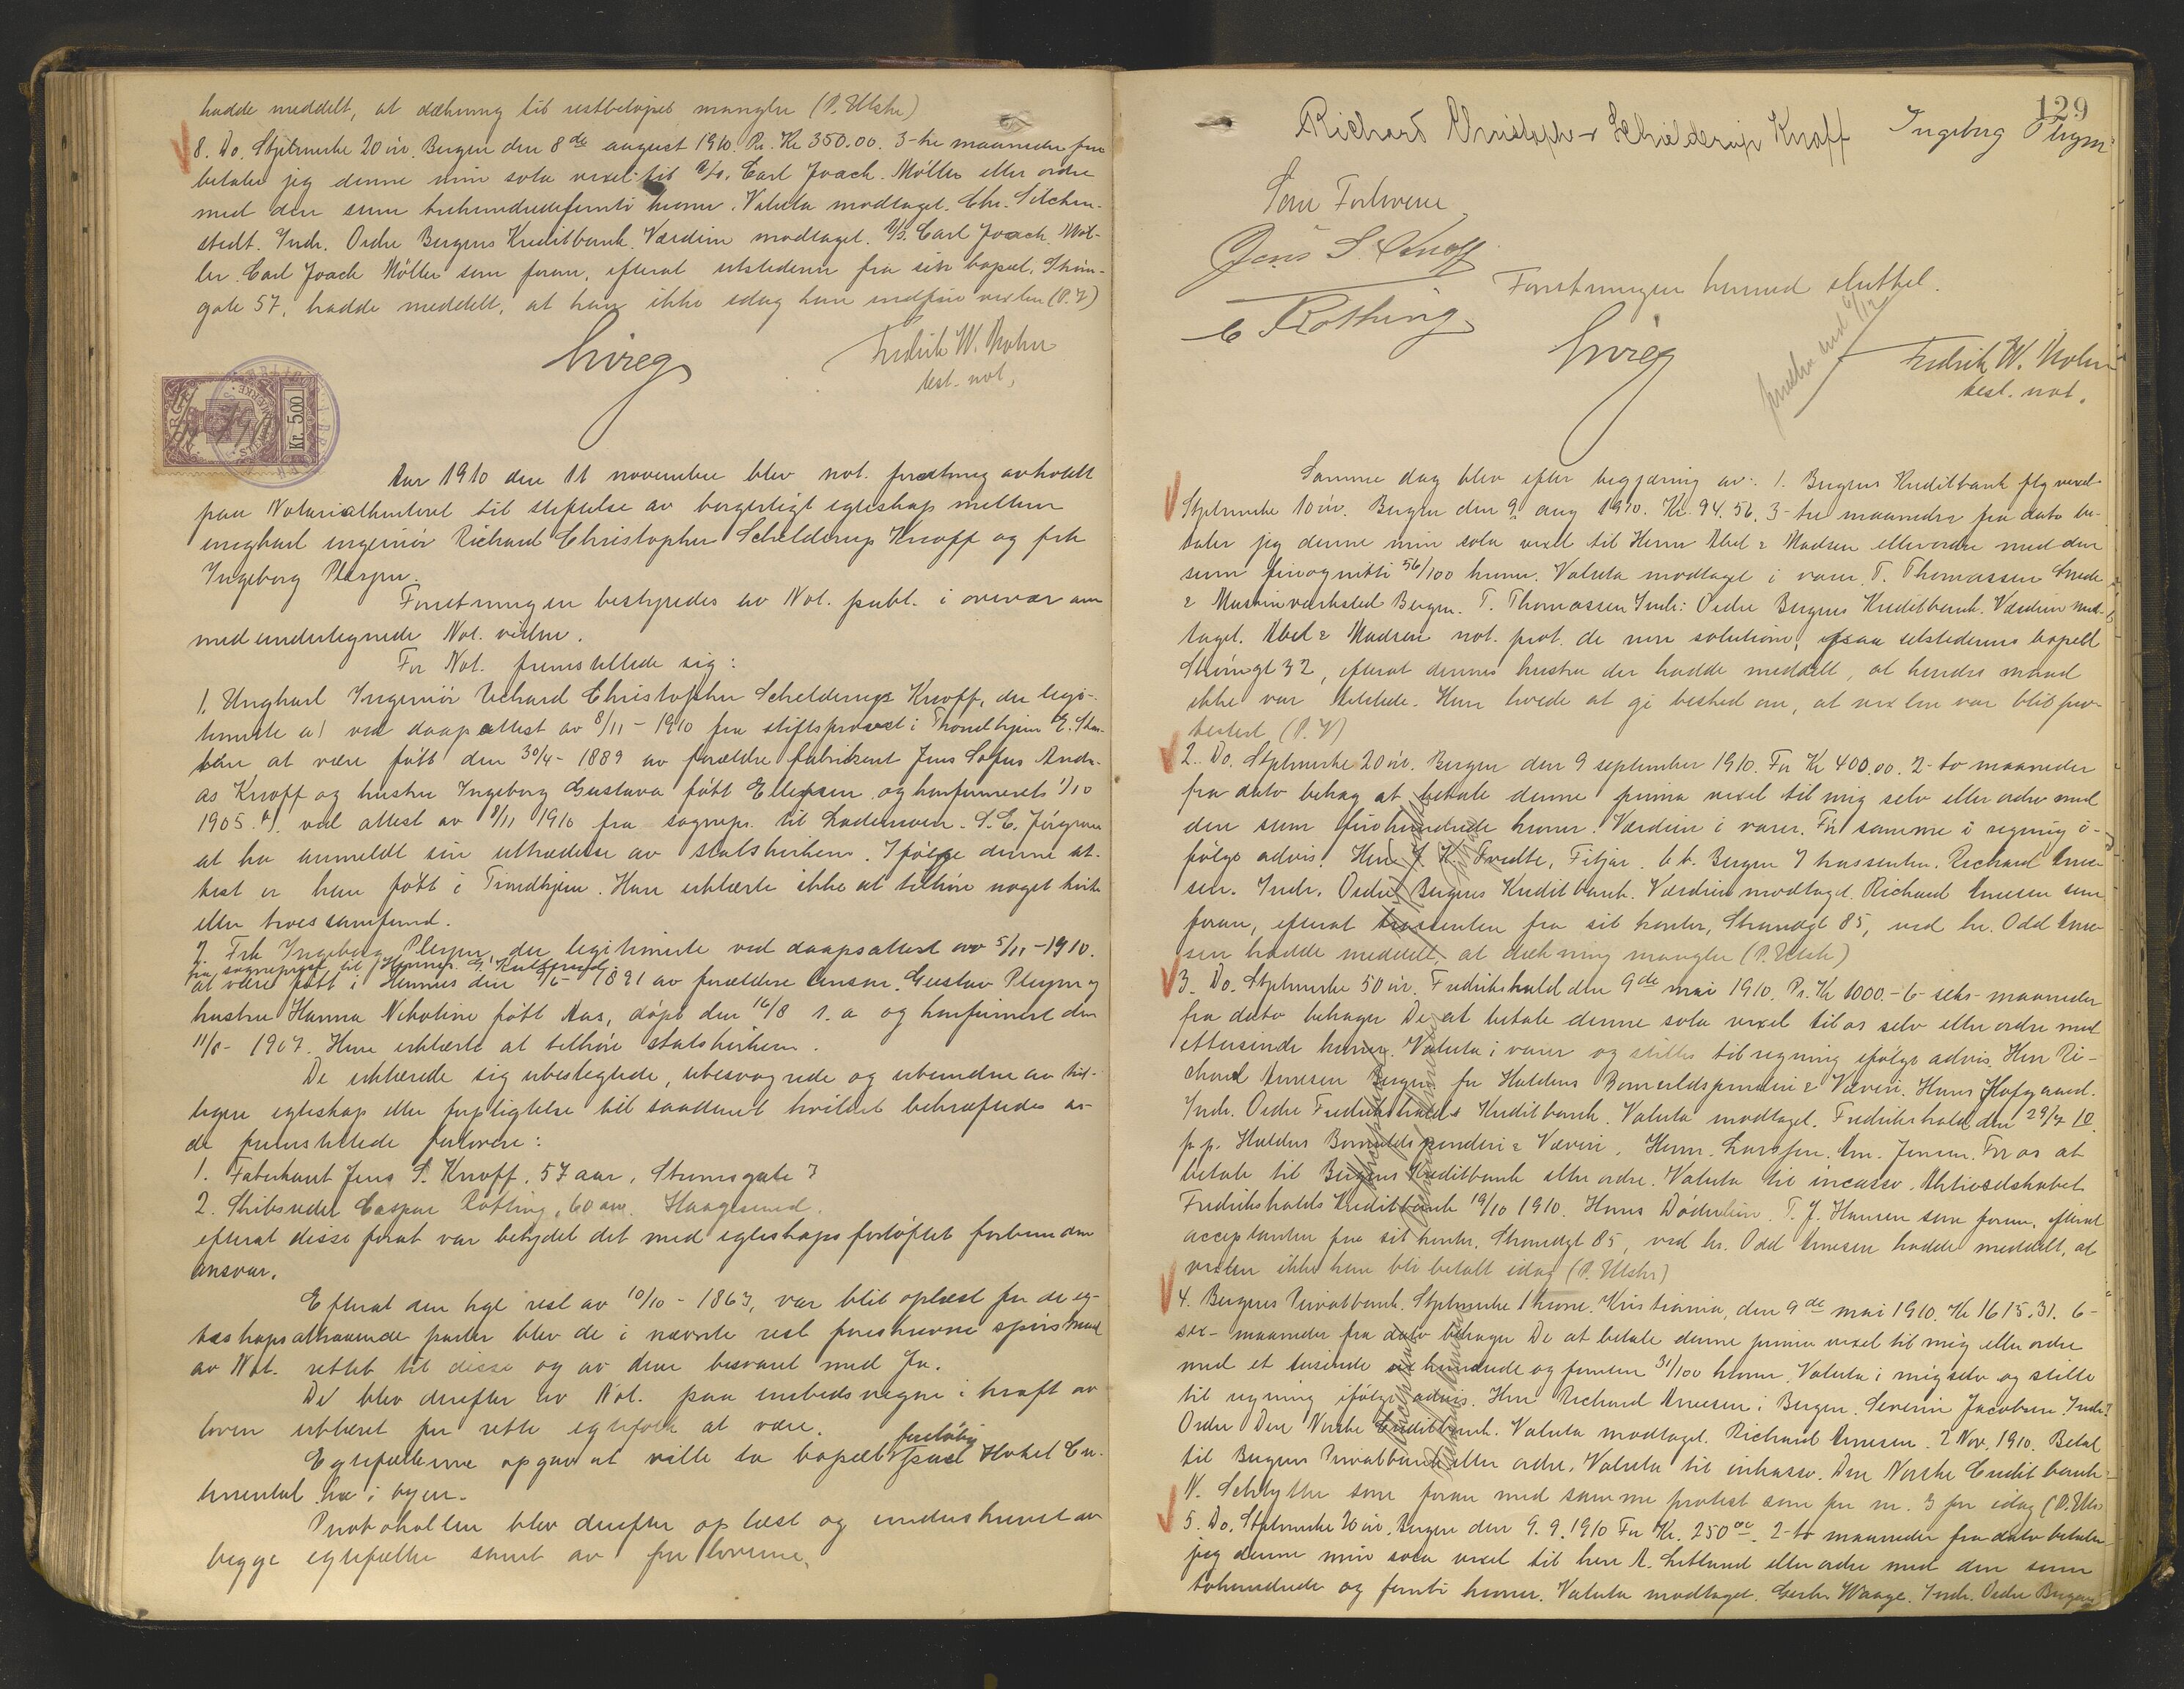 hadde meddelt, at dækning til restbeløpet mangler (P. Utskr)
8. Do. Stplmerke 20 øre. Bergen den 8de august 1910. Pr. Kr 350.00. 3-tre maaneder fra
betaler jeg denne min sola vexel til A/S. Carl Joach. Møller eller ordre
med den sum trehundredefemti kroner. Valuta modtaget. Chr. Sitchen-
stedt. Indr. Ordre Bergens Kreditbank. Værdien modtaget. A/S. Carl Joach. Møl-
ler. Carl Joach Møller som foran, efterat utstederen fra sin bopæl, Strøm-
gate 57, hadde meddelt, at han ikke idag kan indfrie vexlen (P. V)
Fredrik W. Mohn
best. not.
Kr. 5.00
Aar 1910 den 11 november blev not. forretning avholdt
paa Notarialkontoret til stiftelse av borgerligt egteskap mellem
ungkarl ingeniør Richard Christopher Schelderup Knoff og frk
Ingeborg Plesjm.
Forretningen bestyredes av Not. publ. i overvær av
medundertegnede Not. vidne.
For Not. fremstillede sig:
1. Ungkarl Ingeniør Richard Christopher Schelderup Knoff, der legi-
timerte a) ved daapsattest av 8/11-1910 fra stiftsprovst i Trondhjem E. 
at være født den 30/4-1889 av forældre fabrikant Jens Sofus Andre-
as Knoff og hustru Ingeborg Gustava født Ellefsen og konfirmeret 1/10
1905. b) ved attest av 9/11 1910 fra sognepr. til Lademoen. S. E. Jørgensen
at ha anmeldt sin uttrædelse av statskirken. Ifølge denne at-
test er han født i Trondhjem. Han erklærte ikke at tilhøre noget kirke
eller troessamfund.
2. Frk Ingeborg Plesjm, der legitimerte ved daapsattest av 5/11-1910.
fra sogneprest til Hennes
at være født i Hennes den 1891 av forældre Anton Gustav Plesjm og
hustru Hanna Nikoline født Aas, døpt den 16/8 s. a og konfirmert den
11/8-1907. Hun erklærte at tilhøre statskirken.
De erklærede sig ubeslegtede, ubesvogrede og ubundne av tid-
ligere egteskap eller forpligtelse til saadant hvilket bekræftedes av
de fremstillede forlovere:
1. Fabrikant Jens S. Knoff, 57 aar, Strømsgate 3
2. Skibsreder Caspar Røthing, 60 aar. Haugesund.
efterat disse forut var betydet det med egteskapsforløftet forbundne
ansvar.
Efterat den kgl. resl av 10/10-1863, var blit oplæst for de eg-
teskapsattraaende parter blev de i nævnte resl foreskrevne spørsmaal
av Not. rettet til disse og av dem besvaret med Ja.
De blev derefter av Not. paa embedsvegne i kraft av
loven erklæret for rette egtefolk at være.
foreløbig
Egtefællerne opgav at ville ta bopæl paa Hotel Con-
tinental her i byen.
Protokollen blev derefter oplæst og underskrevet av
begge egtefæller samt av forloverne.
129
Richard Christopher Schielderup Knoff Ingeborg Plesjm
Som Forlovere
Jens S. Knoff
Forretningen hermed sluttet.
C Røthing
Fredrik W. Mohn
best. not.
Samme dag blev efter begjæring av: 1. Bergens Kreditbank flg vexel
Stplmerke 10 øre. Bergen den 9. aug 1910. Kr. 94.56. 3-tre maaneder fra dato be-
taler jeg denne min sola vexel til Herrer Abel & Madsen eller ordre med den
sum fireognitti 56/100 kroner. Valuta modtaget i varer. T. Thomassen Smede
& Maskinværksted Bergen. T. Thomassen Indr: Ordre Bergens Kreditbank. Værdien mod-
taget. Abel & Madsen not. prot. de non solutione, paa utstederens bopæl
Strømgt 32, efterat dennes hustru der hadde meddelt, at hendes mand
ikke var tilstede. Hun lovede at gi besked om, at vexlen var blit pro-
testert (P. V)
2. Do. Stplmerke 20 øre. Bergen den 9 september 1910. For Kr 400.00. 2-to maaneder
fra dato behag at betale denne prima vexel til mig selv eller ordre med
den sum firehundrede kroner. Værdien i varer. Før samme i regning i-
følge advis. Herr J. K. Tvedte, Fitjar. b. t. Bergen Trassenten. Richard Arne-
sen. Indr. Ordre Bergens Kreditbank. Værdien modtaget. Richard Arnesen som
foran, efterat trassenten fra sit kontor, Strandgt 85, ved hr. Odd Arne-
sen hadde meddelt, at dækning mangler (P. Utskr)
3. Do. Stplmerke 50 øre. Fredrikshald den 9de mai 1910. Pr. Kr 1000.- 6-seks-maaneder
fra dato behager De at betale denne sola vexel til os selv eller ordre med
ettusinde kroner. Valuta i varer og stilles til regning ifølge advis. Herr Ri-
chard Arnesen Bergen for Haldens Bomuldspinderi & Væveri. Hans Hofgaard.
Indr. Ordre Fredrikshalds Kreditbank. Valuta modtaget. Fredrikshald den 29/7 10.
p.p. Haldens Bomuldspinderi & Væveri. Jensen. For os at
betale til Bergens Kreditbank eller ordre. Valuta til incasso. Aktieselskabet
Fredrikshalds Kreditbank 19/10 1910. Hans Døderlein. T. J. Hansen som foran, efterat
acceptanten fra sit kontor, Strandgt 85, ved hr. Odd Arnesen hadde meddelt, at
vexlen ikke kan bli betalt idag (P. Utskr)
4. Bergens Privatbank. Stplmerke 1 krone. Kristiania, den 9de mai 1910. Kr 1615.31. 6-
sex-maaneder fra dato behager De at betale denne prima vexel til mig eller ordre
med et tusinde sex hundrede og femten 31/100 kroner. Valuta i mig selv og stilles
til regning ifølge advis. Herr Richard Arnesen i Bergen. Severin Jacobsen. Indr:
Ordre Den Norske Creditbank. Valuta modtaget. Richard Arnesen. 2 Nov. 1910. Betal
til Bergens Privatbank eller ordre. Valuta til inkasso. Den Norske Creditbank.
N. Schlytter som foran med samme protest som for nr. 3 for idag (P. Utskr)
5. Do. Stplmerke 20 øre. Bergen den 9.9.1910 For Kr. 250 00. 2-to maaneder fra dato betaler
jeg denne min sola vexel til herr A. Lotlund eller ordre med den sum
tohundrede og femti kroner. Valuta modtaget. Gerh. Waage. Indr. Ordre Bergens